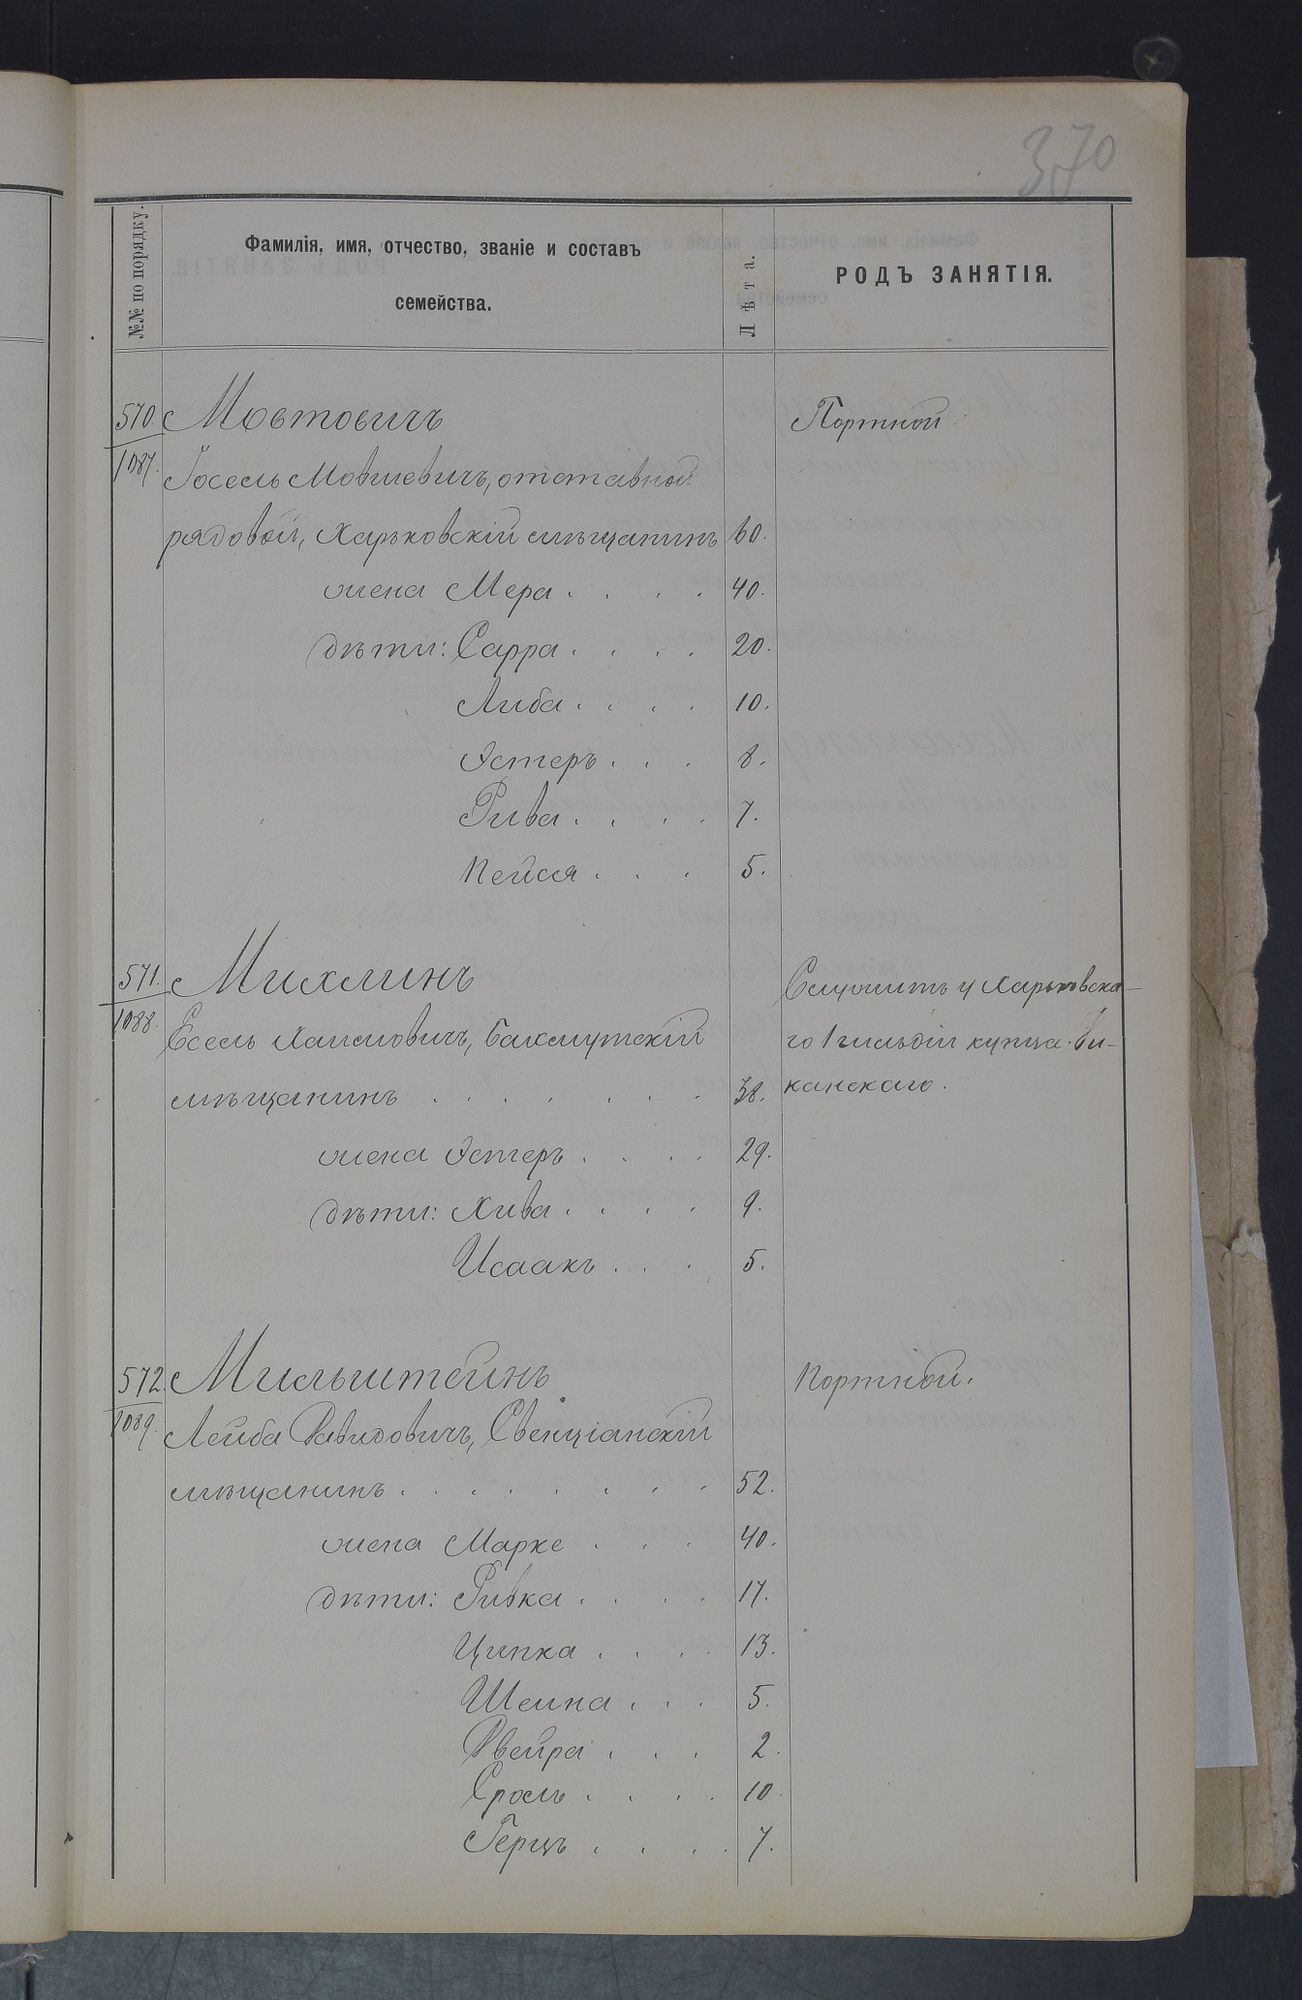 370
№№ по порядку.
Фамилія, имя, отчество, званіе и составъ
семейства.
Лѣта.
РОДЪ ЗАНЯТІЯ.
570. Мовтовичъ Портной.
1087. Іосель Мовшевичъ, отставной
рядовой, Харьковскій мѣщанинъ 60.
жена Мера . . . . 40.
дѣти: Сарра . . . . 20.
Либа . . . . 10.
Эстеръ . . . 8.
Рива . . . . 7.
Пейся . . . 5.
571. Михлинъ Служитъ у Харьковска-
1088. Есель Хаимовичъ, Бахмутскій го 1 гильдіи купца Ви-
мѣщанинъ . . . . . . 38. канскаго.
жена Эстеръ . . . . 29.
дѣти: Хива . . . . 9.
Исаакъ . . . 5.
572. Мильштейнъ Портной.
1089. Лейба Давидовичъ, Свенціанскій
мѣщанинъ . . . . . . . . 52.
жена Марке . . . 40.
дѣти: Ривка . . . . 17.
Ципка . . . . 13.
Шейна . . . 5.
Двейра . . . 2.
Сроль . . . . 10.
Герцъ . . . . 7.